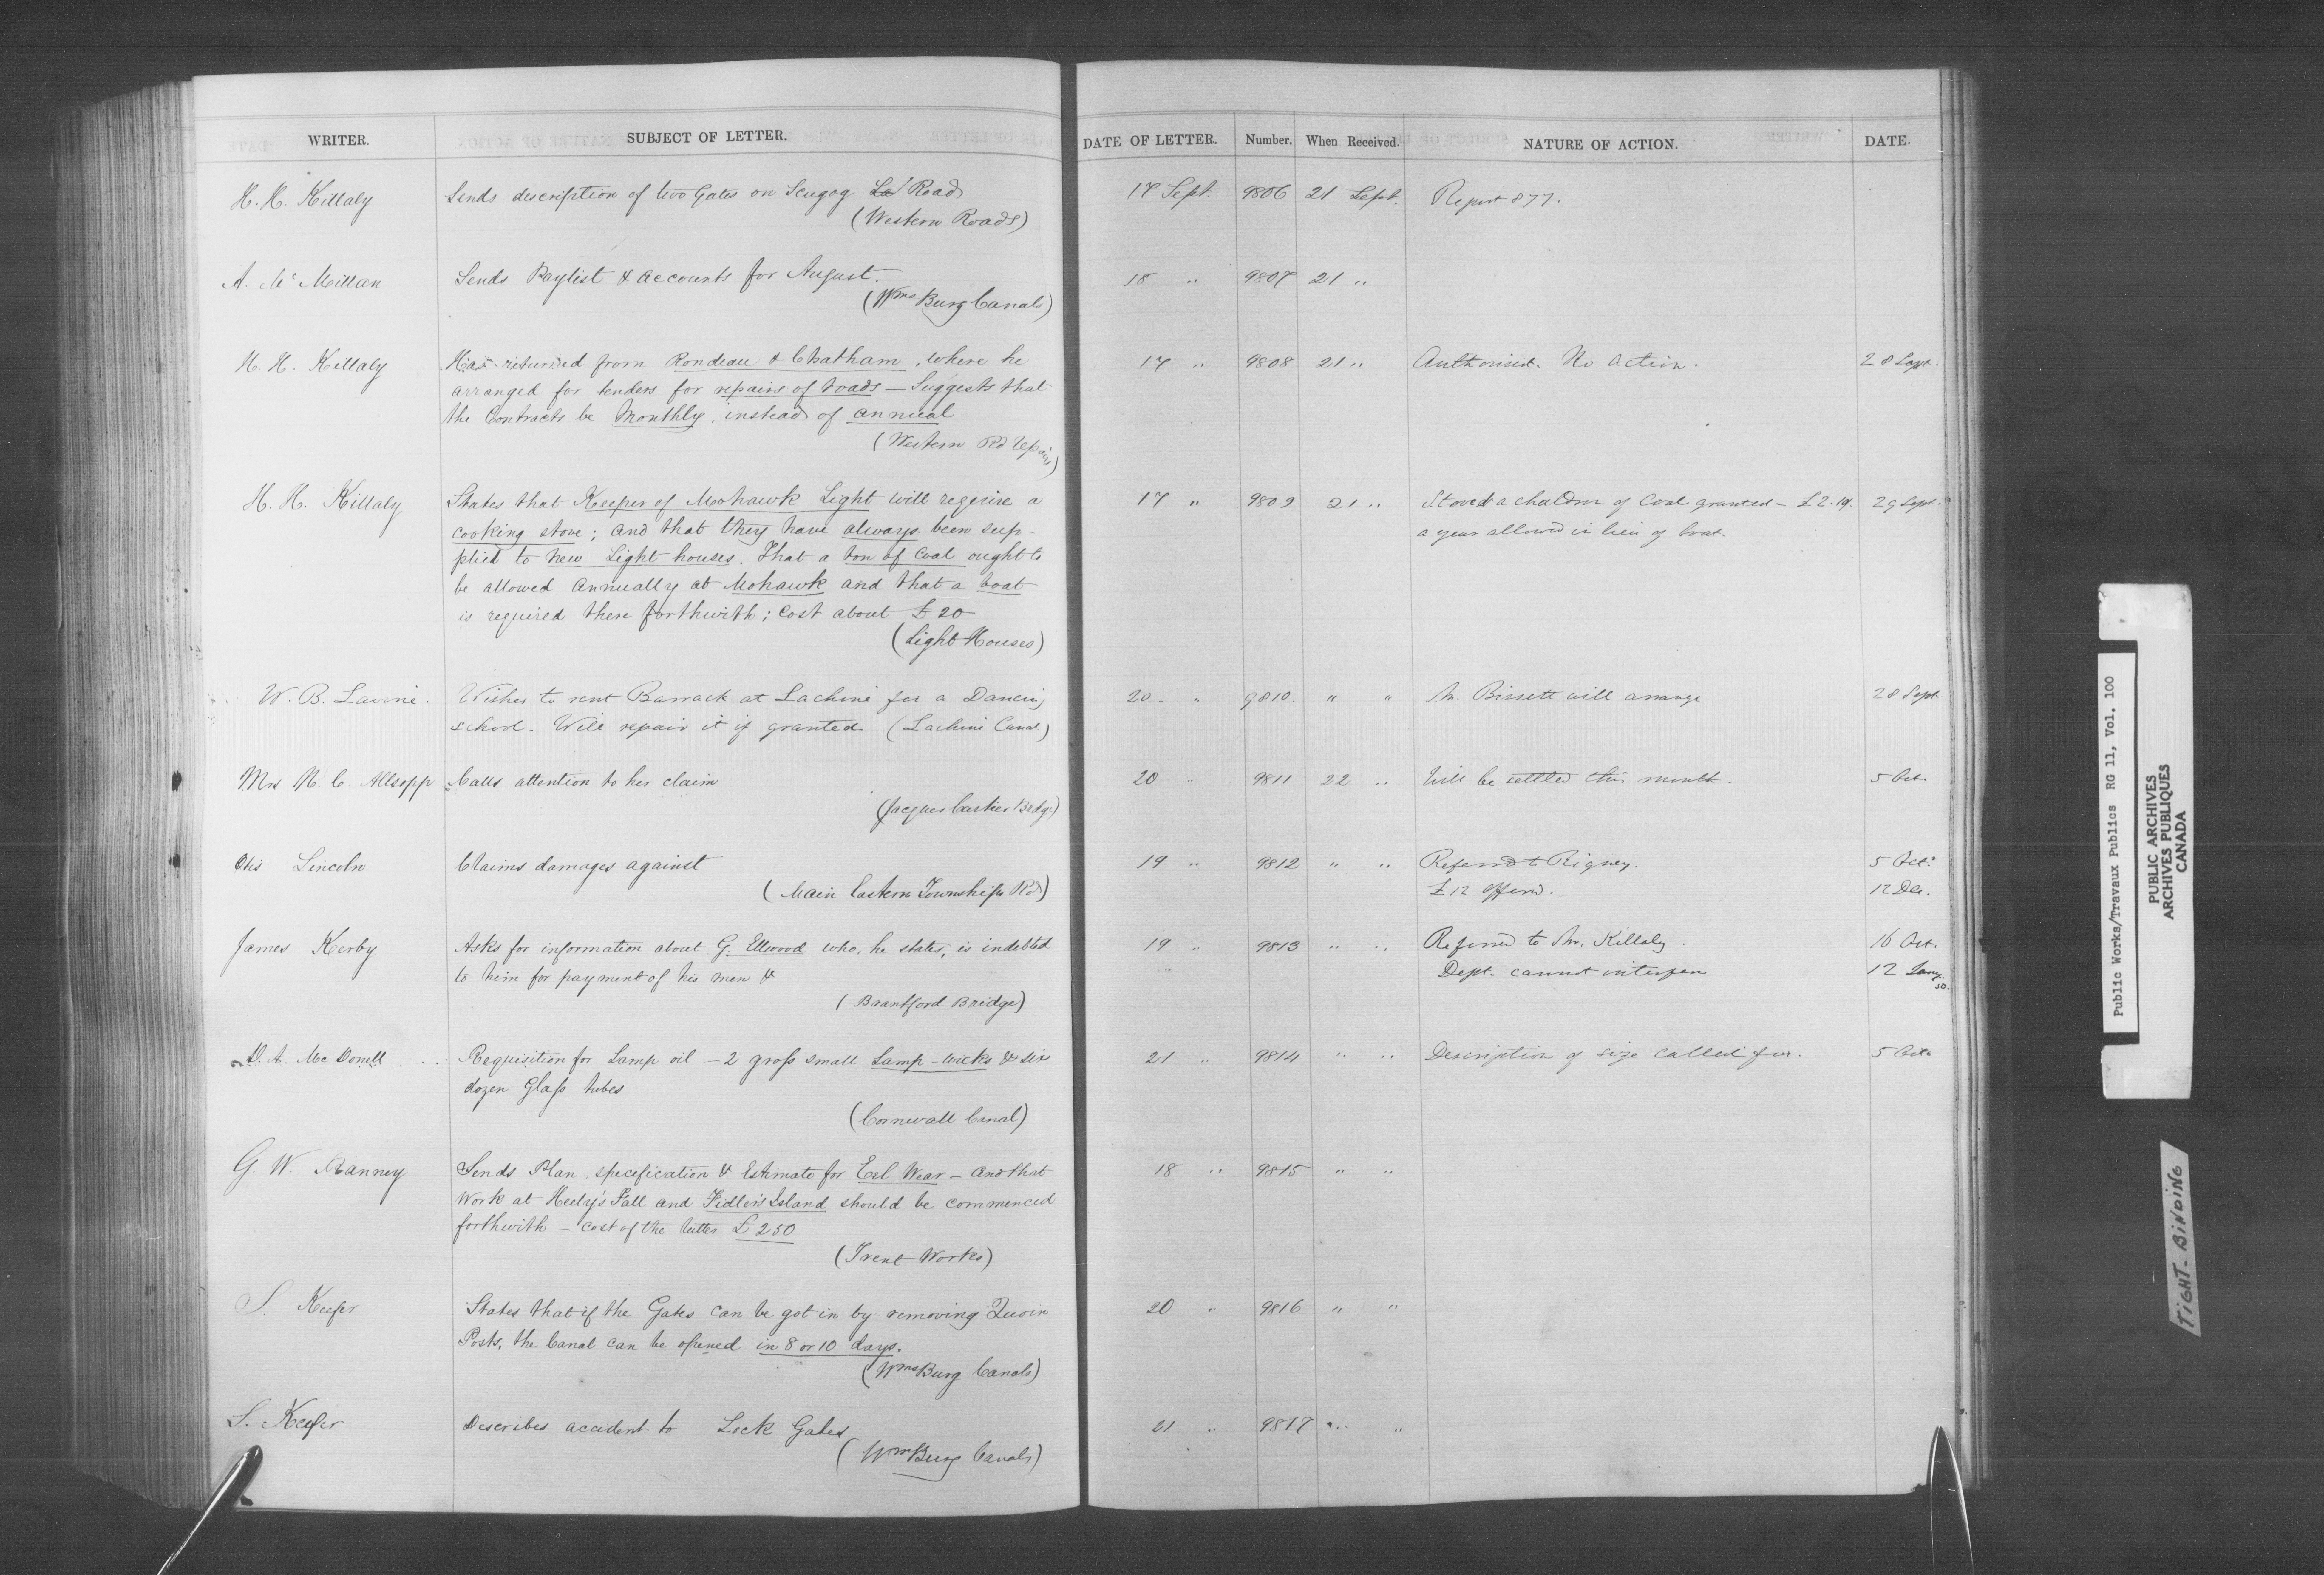 WRITER. SUBJECT OF LETTER. DATE OF LETTER. Number. When Received. NATURE OF ACTION. DATE.
H. H. Killaly Sends description of two Gates on Scugog Road 17 Sept. 9806 21 Sept. Report 877.
(Western Roads)
A. Mc Millan Sends Paylist & accounts for August. 18 " 9807 21 "
(Wms Burg Canals)
H. H. Killaly Has returned from Rondeau & Chatham, where he 17 " 9808 21 " Authorised. No action. 28 Sept.
arranged for tenders for repairs of roads — Suggests that
the Contracts be Monthly, instead of annual
(Western Rd Repairs)
H. H. Killaly States that Keeper of Mohawk Light will require a 17 " 9809 21 " Stove & a chaldron of Coal granted — £2.10. 29 Sept.
cooking stove; and that they have always been sup- a year allowed in lieu of boat.
plied to new Light houses. That a ton of Coal ought to
be allowed annually at Mohawk and that a boat
is required there forthwith; cost about £20
(Light Houses)
W. B. Lavine. Wishes to rent Barrack at Lachine for a Dancing 20 " 9810. " " Mr. Bissett will arrange 28 Sept.
school. Will repair it if granted. (Lachine Canal)
Mrs N. C. Allsopp Calls attention to her claim 20 " 9811 22 " Will be settled this month. 5 Oct.
(Jacques Cartier Bridge)
Otis Lincoln Claims damages against 19 " 9812 " " Referred to Rigney. 5 Oct.
(Main Eastern Townships Rd) £12 offered. 12 Dec.
James Kerby Asks for information about G. Ellwood who, he states, is indebted 19 " 9813 " " Referred to Mr. Killaly. 16 Oct.
to him for payment of his men & Dept. cannot interfere 12 Jany. 50.
(Brantford Bridge)
D. A. Mc Donell Requisition for Lamp oil — 2 gross small Lamp-wicks & six 21 " 9814 " " Description of size called for. 5 Oct.
dozen Glass tubes
(Cornwall Canal)
G. W. Ranney Sends Plan, specification & Estimate for Eel Wear — and that 18 " 9815 " "
Work at Heely's Fall and Fidler's Island should be commenced
forthwith — cost of the latter £250
(Trent Works)
S. Keefer States that if the Gates can be got in by removing Quoin 20 " 9816 " "
Posts, the Canal can be opened in 8 or 10 days.
(Wms Burg Canals)
S. Keefer Describes accident to Lock Gates 21 " 9817 " "
(Wms Burg Canals)
Public Works/Travaux Publics RG 11, Vol. 100
PUBLIC ARCHIVES
ARCHIVES PUBLIQUES
CANADA
TIGHT-BINDING